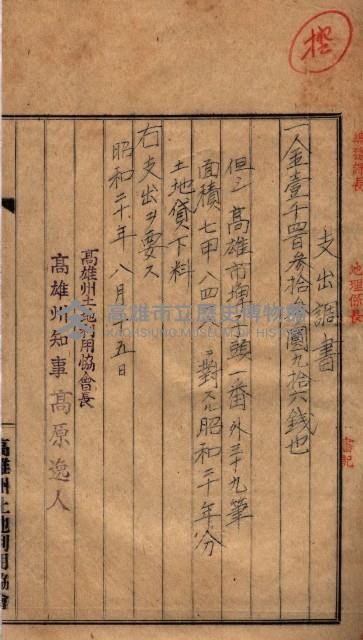 支出調書
一、金壹千四百参拾 圓九拾六錢也
但シ高雄市 頭一番外三十九筆
面積七甲八四 ニ對スル昭和二十年分
土地貸下料
右支出ヲ要ス
昭和二十年八月 五日
高雄州土地利用協會長
高雄州知事高原逸人
高雄州土地利用協會
地理係長
書記
高雄市立歷史博物館
KAOHSIUNG MUSEUM OF HISTORY